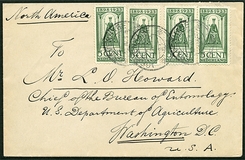 North America
1898 1923 1898 1923 1898 1923 1898 1923
5 CENT 5 CENT 5 CENT 5 CENT
To
Mr. L. O. Howard.
Chief of the Bureau of Entomology
U.S. Department of Agriculture
Washington D.C
U.S.A.